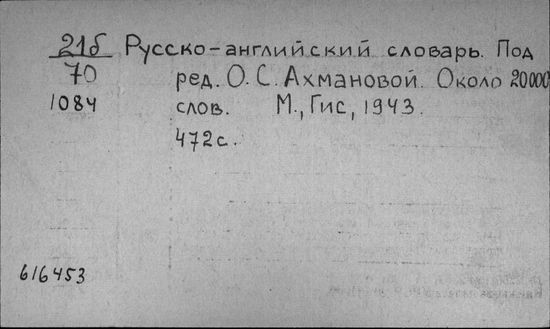 21б Русско-английский словарь. Под
70 ред. О.С. Ахмановой. Около 20000
1084 слов. М., Гис, 1943.
472с.
616453